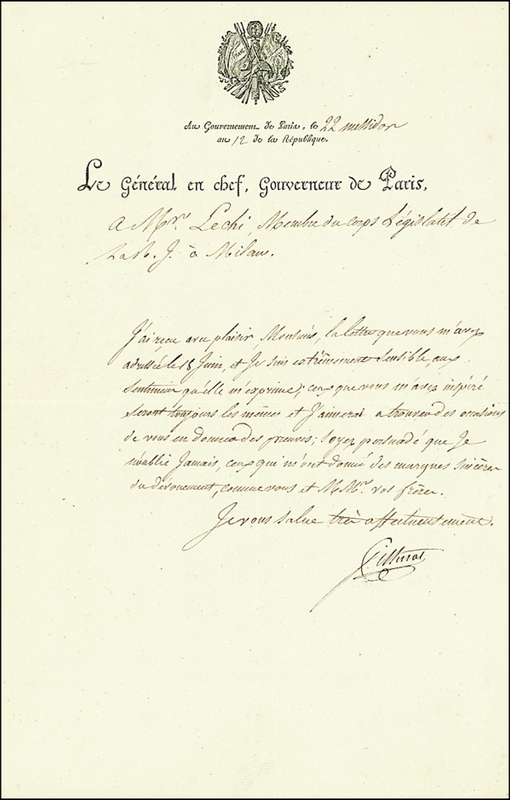 Au Gouvernement de Paris, le 22 messidor
an 12 de la République.
Le Général en chef, Gouverneur de Paris,
A Mr. Lechi Membre du corps Législatif de
la R. J. à Milan.
J'ai reçu avec plaisir Monsieur, la lettre que vous m'avez
adressée le 18 Juin, et Je suis extrêmement sensible aux
sentimens qu'elle m'exprime; ceux que vous m'avez inspiré
seront toujours les mêmes et J'aimerai a trouver des occasions
de vous en donner des preuves; soyez persuadé que Je
n'oublie Jamais, ceux qui m'ont donné des marques sincères
du dévouement, comme vous et MMrs. vos frères.
Je vous salue très affectueusement.
Murat